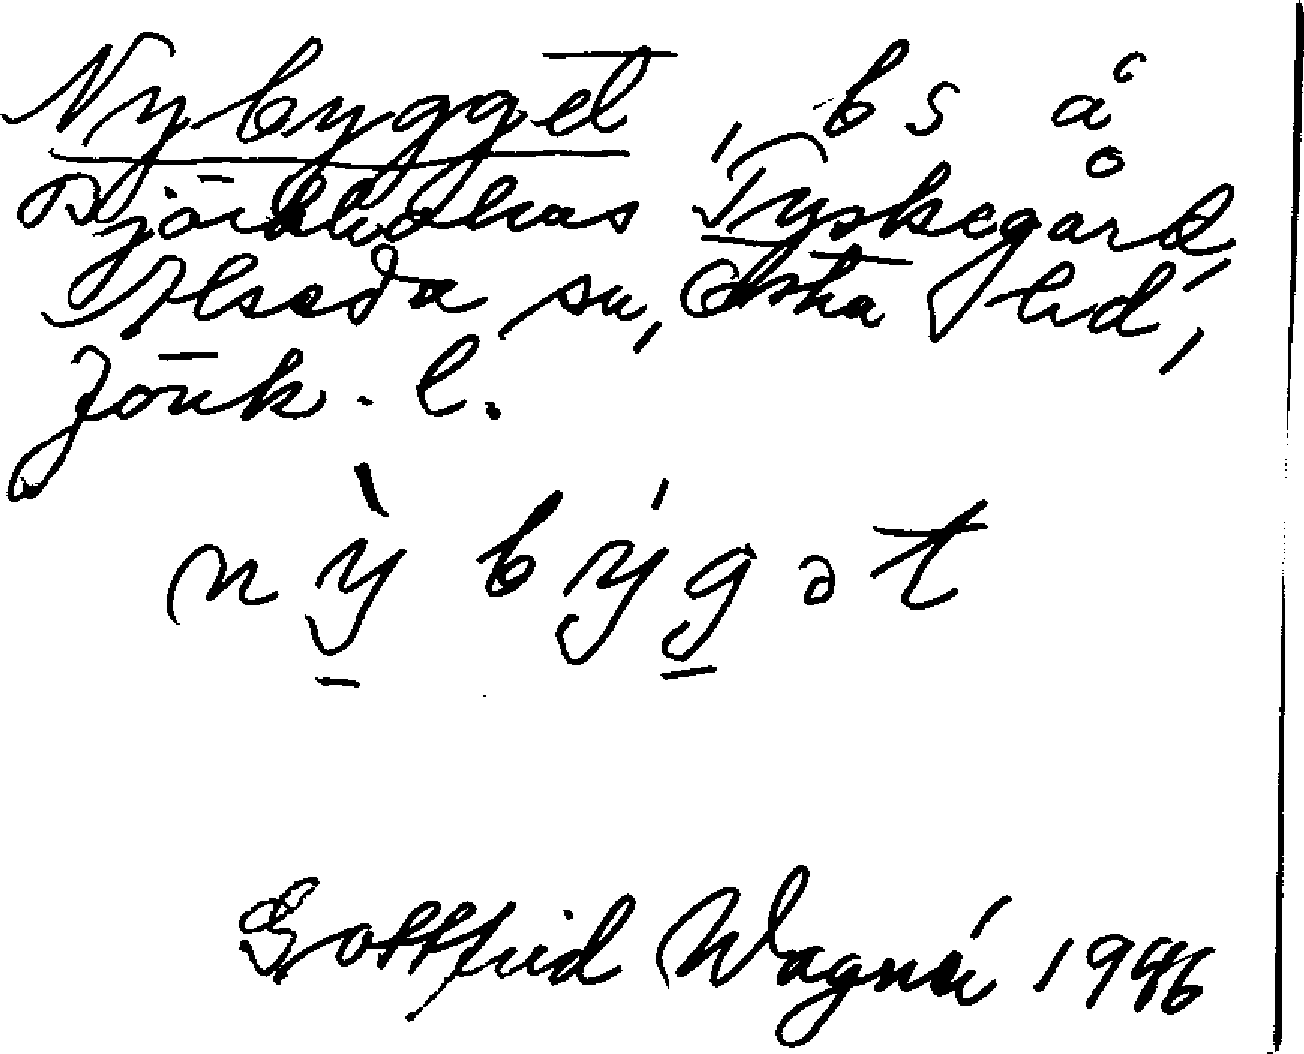 Nybygget, bs å
Björkhultas Tyskegård,
Alseda sn, Östra hd,
Jönk. l.
nỳ býgət
Gottfrid Wagnér 1946